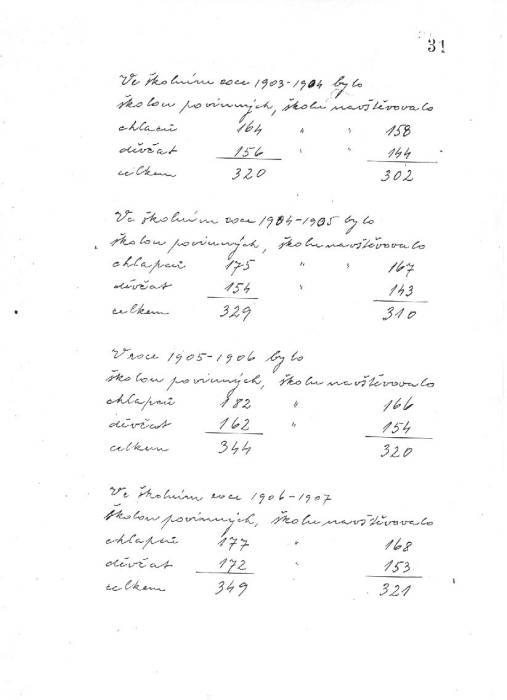 31
Ve školním roce 1903-1904 bylo
školou povinných, školu navštěvovalo
chlapců 164 " " 158
děvčat 156 " " 144
celkem 320 302
Ve školním roce 1904-1905 bylo
školou povinných, školu navštěvovalo
chlapců 175 " " 167
děvčat 154 " 143
celkem 329 310
V roce 1905-1906 bylo
školou povinných, školu navštěvovalo
chlapců 182 " 166
děvčat 162 " 154
celkem 344 320
Ve školním roce 1906-1907
školou povinných, školu navštěvovalo
chlapců 177 " 168
děvčat 172 " 153
celkem 349 321